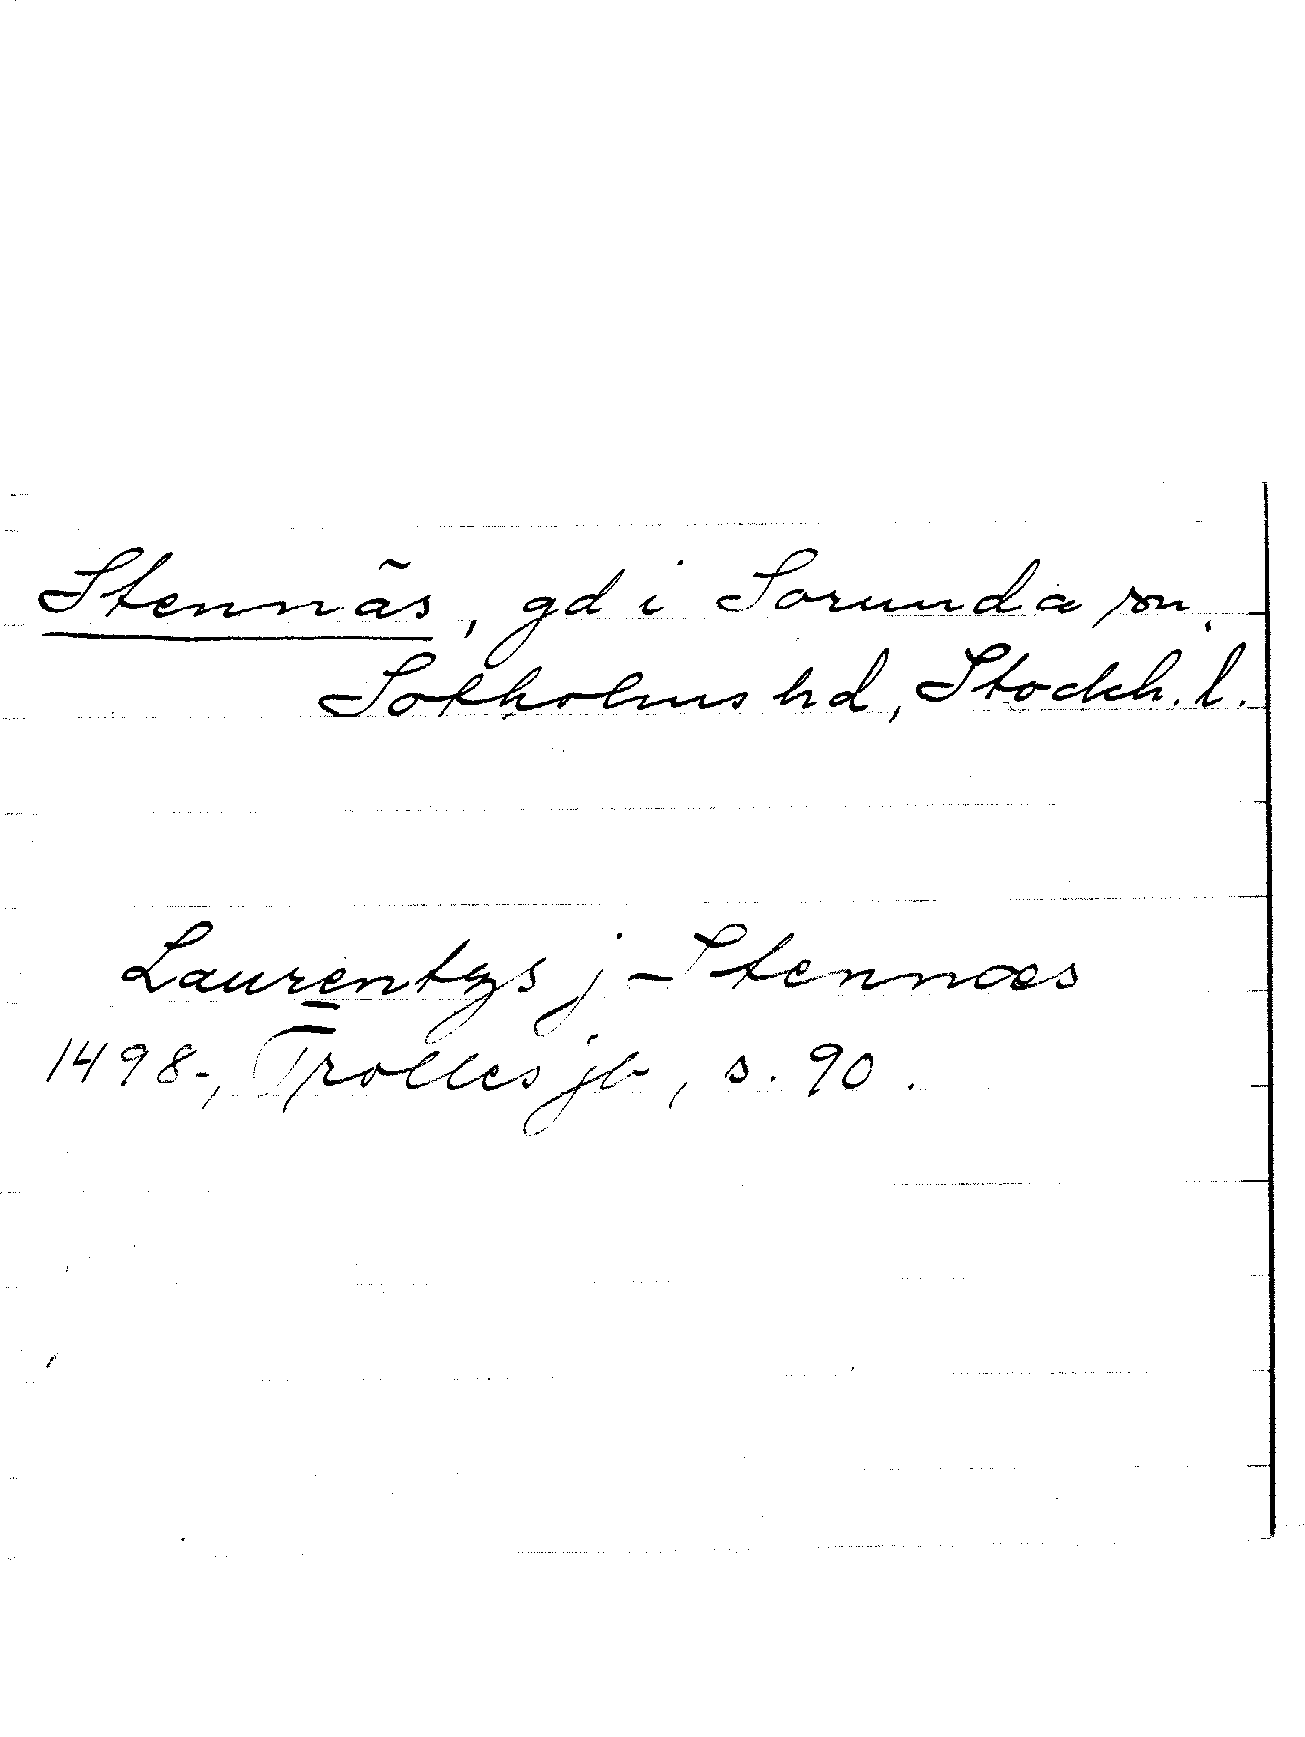 Stennäs, gd i Sorunda sn,
Sotholms hd, Stockh. l.
Laurentys j - Stennæs
1498-, Trolles jb, s. 90.